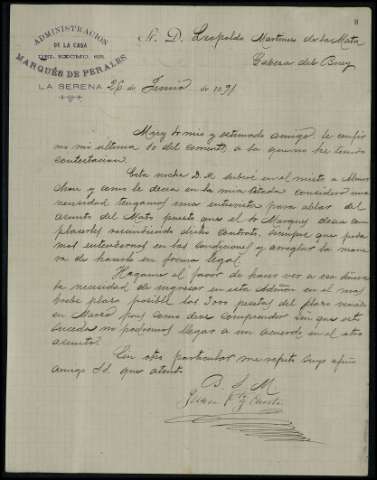 8
ADMINISTRACION
DE LA CASA
DEL EXCMO. SR.
MARQUÉS DE PERALES
LA SERENA
Sr. D. Leopoldo Martinez de la Mata
Cabeza del Buey
26 de Junio de 1891
Muy Sr mio y estimado amigo: le confir
mo mi ultima del corriente, a la que no he tenido
contestacion.
Esta noche D. M. subiré en el mixto a Almor
chon y como le decia en la mia citada considero una
necesidad tengamos una entrevista para hablar del
asunto del Mato puesto que el Sr Marques desea com
placerles rescindiendo dicho contrato, siempre que poda
mos entendernos en las condiciones y arreglar la mane
ra de hacerlo en forma legal.
Hagame el favor de hacer ver a esa Señora
la necesidad de ingresar en esta Admon en el mas
breve plazo posible las 3000 pesetas del plazo vencido
en Marzo pues como debe comprender sin que esto
suceda no podremos llegar a un acuerdo en el otro
asunto.
Sin otro particular me repito suyo afmo
amigo S. S. que atento
B. S. M.
Juan